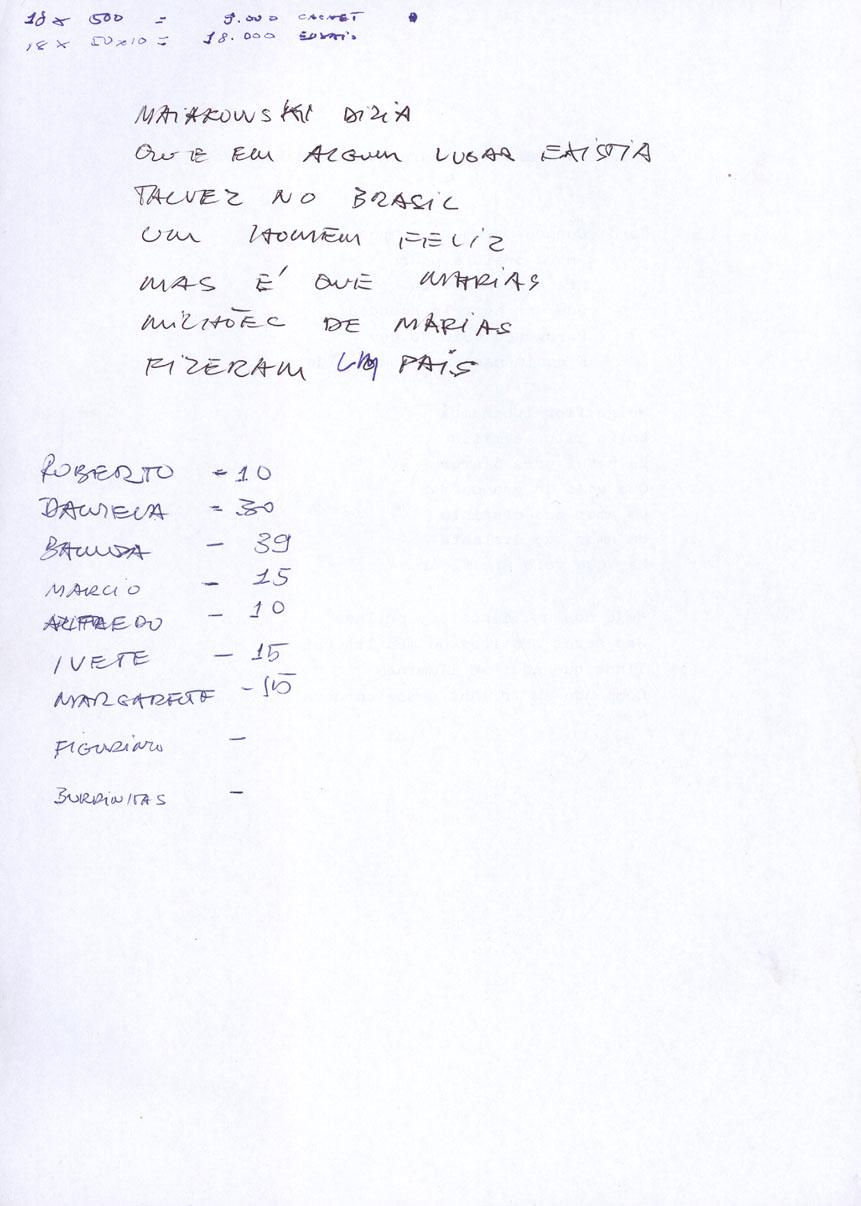 18 x 500 = 9.000 CACHET
18 x 50x10 = 18.000 ENSAIO
MAIAKOWSKI DIZIA
QUE EM ALGUM LUGAR EXISTIA
TALVEZ NO BRASIL
UM HOMEM FELIZ
MAS É QUE MARIAS
MILHÕES DE MARIAS
FIZERAM UM PAÍS
ROBERTO = 10
DANIELA = 30
BANDA - 39
MARCIO - 15
ALFREDO - 10
IVETE - 15
MARGARETE - 15
FIGURINO -
BURRINITAS -